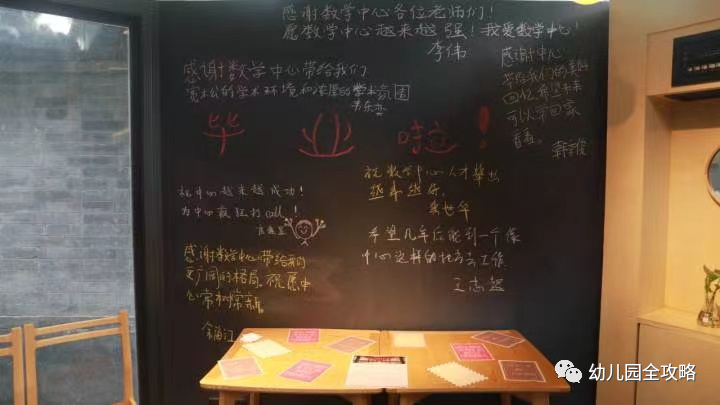 感谢数学中心各位老师们!
愿数学中心越来越强!我爱数学中心!
李伟
感谢中心
带给我们的美好
回忆,希望未来
可以常回家
看看。
感谢数学中心带给我们
宽松的学术环境和浓厚的学术氛围
毕业啦!
祝数学中心人才辈出
越来越好。
祝中心越来越成功!
为中心疯狂打call!
希望几年后能到一个像
中心这样的地方去工作
王志超
感谢数学中心带给我的
更广阔的格局。祝愿中
心常树常新。
余海江
幼儿园全攻略